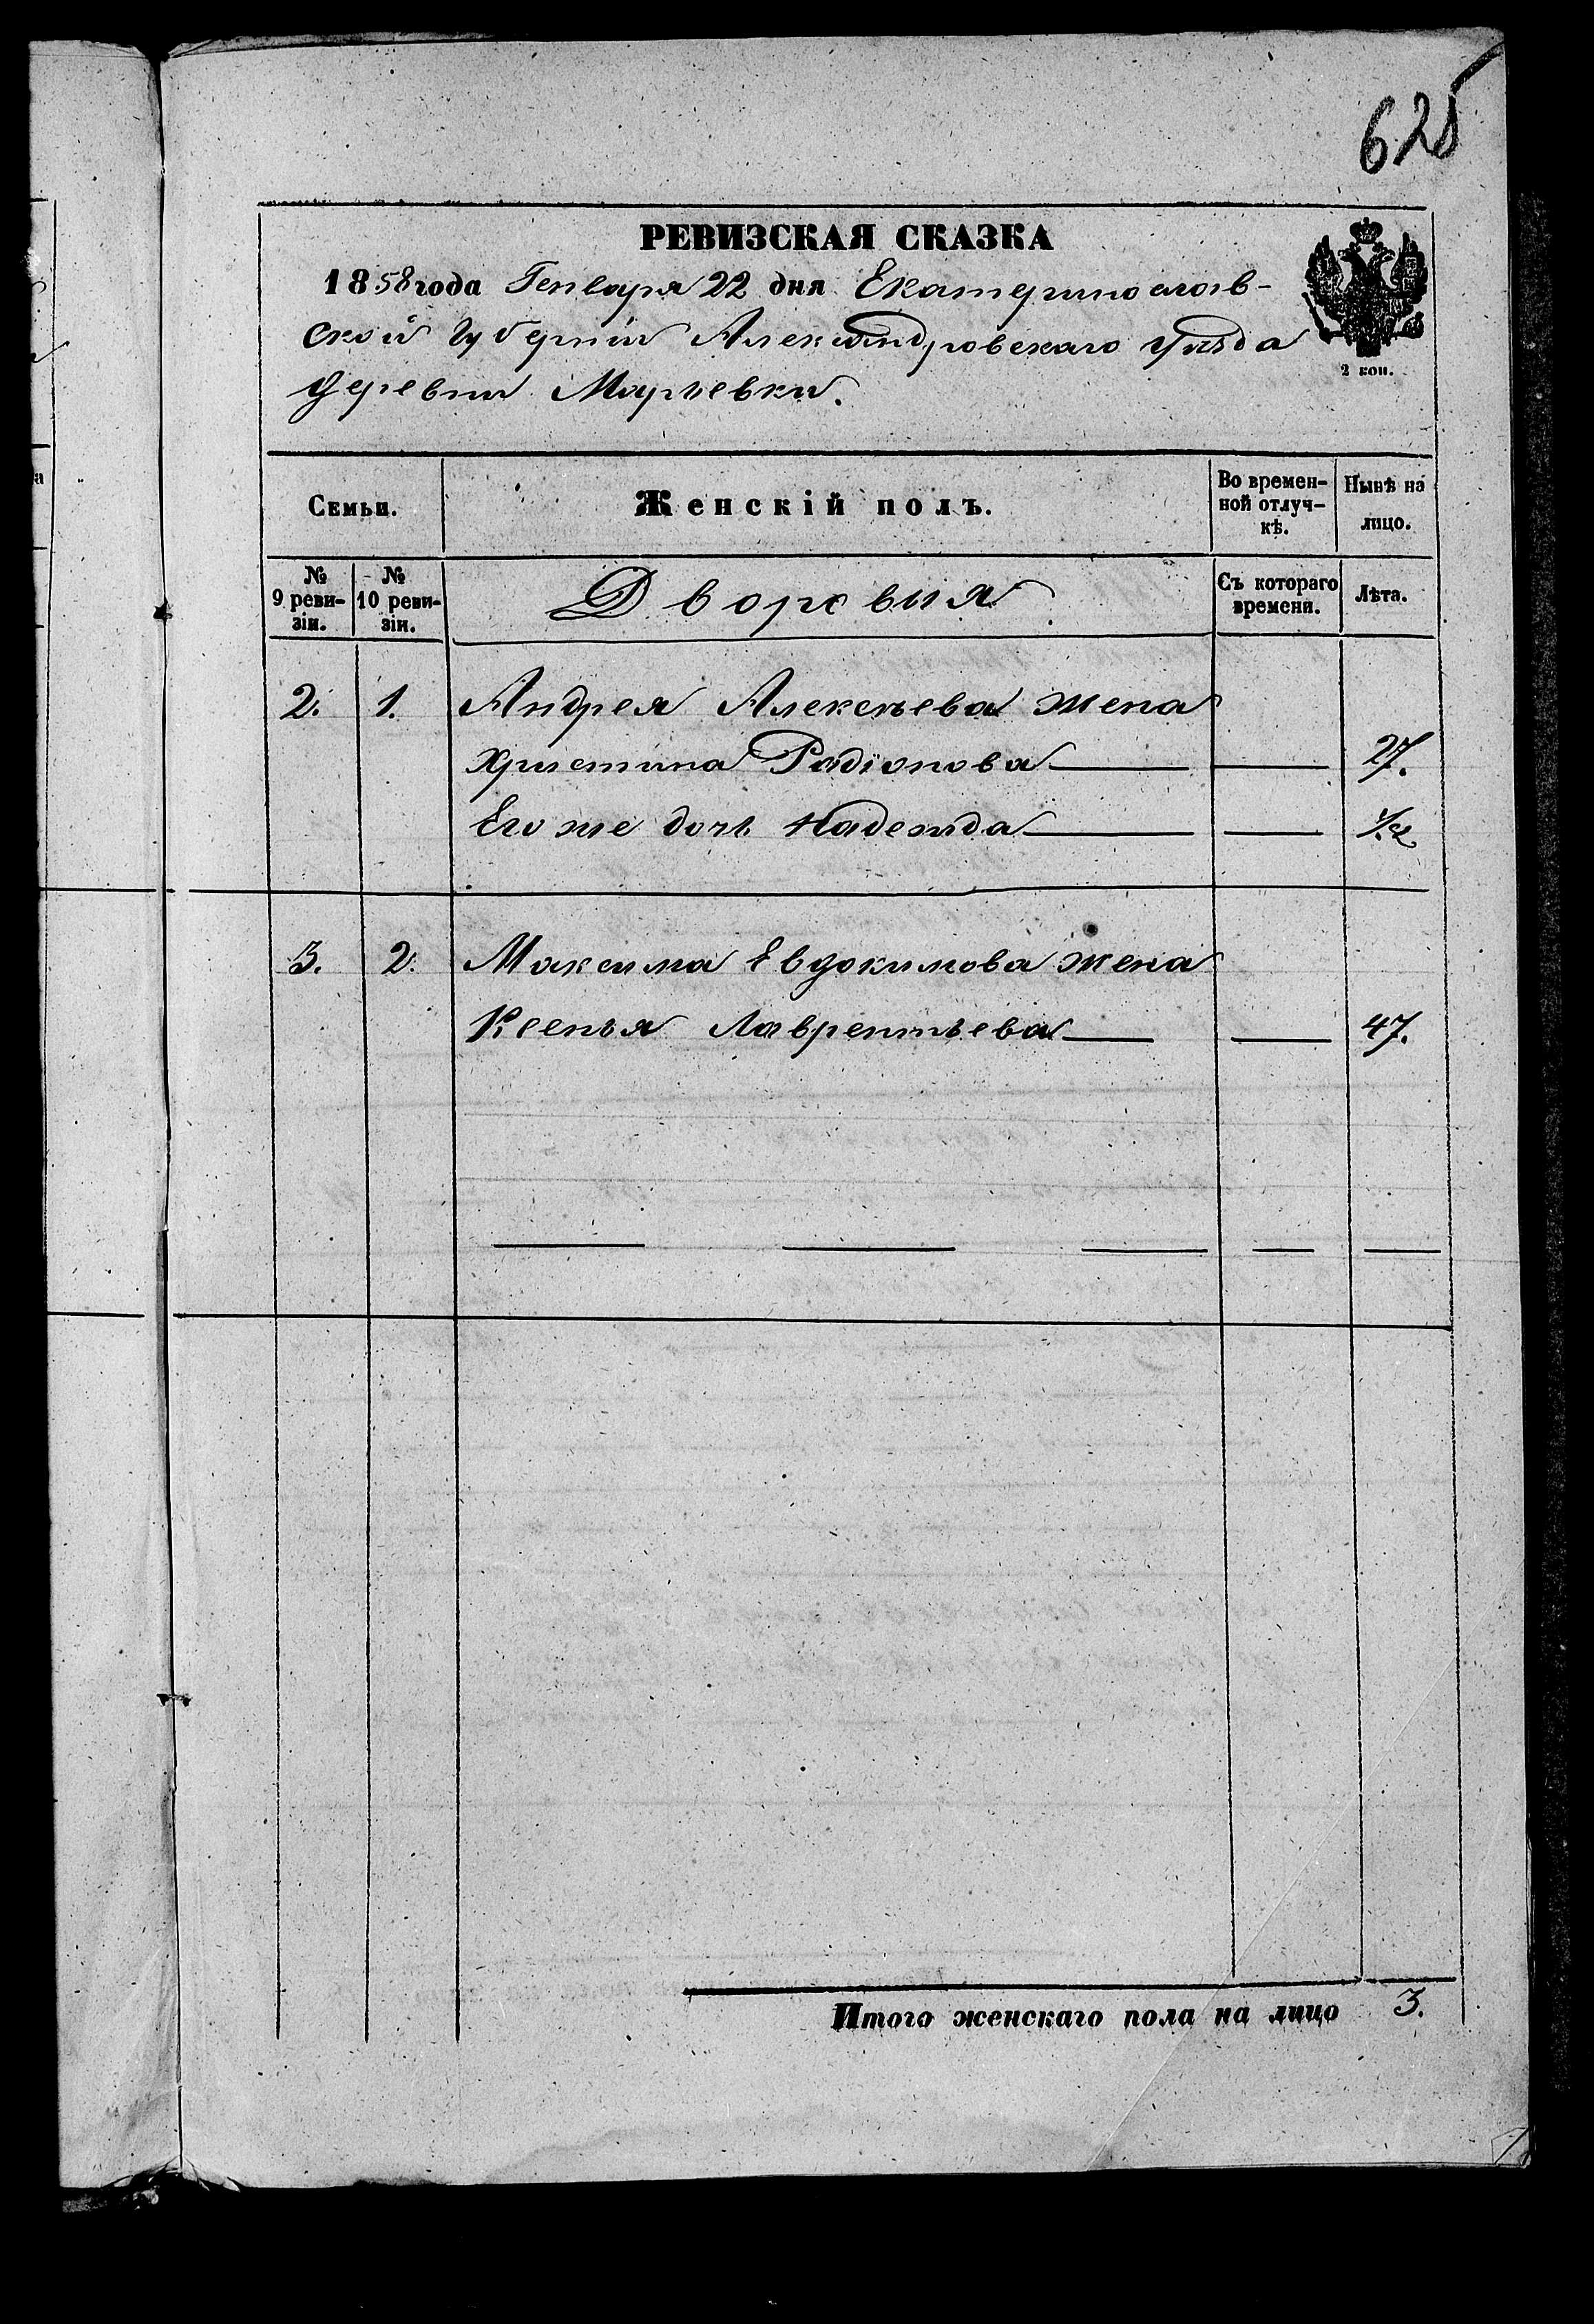 625
РЕВИЗСКАЯ СКАЗКА
1858 года Генваря 22 дня Екатеринослав-
ской Губерніи Александровскаго уѣзда
деревни Марьевки.
2 коп.
Семьи.
Женскій полъ.
Во времен-
ной отлуч-
кѣ.
Нынѣ на
лицо.
№
9 реви-
зіи.
№
10 реви-
зіи.
Дворовыя
Съ котораго
времени.
Лѣта.
2. 1. Андрея Алексѣева жена
Христина Радіонова 27.
Его же дочь Надежда 1/2
3. 2. Максима Евдокимова жена
Ксенья Лаврентьева 47.
Итого женскаго пола на лицо 3.